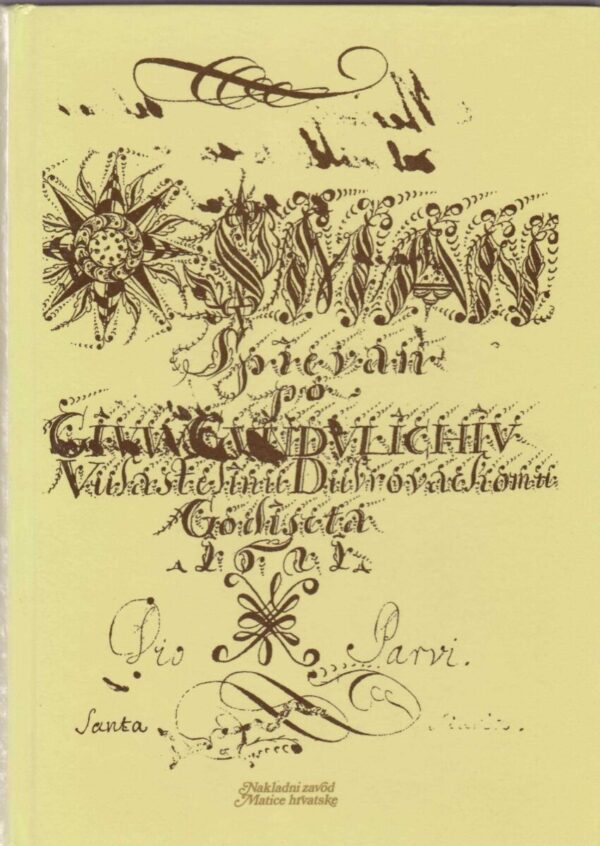 OSMAN
Spievan
po
GIVV GVNDVLICHIV
Dubrovackomu
Godiscta
Dio Parvi.
Santa
Nakladni zavod
Matice hrvatske